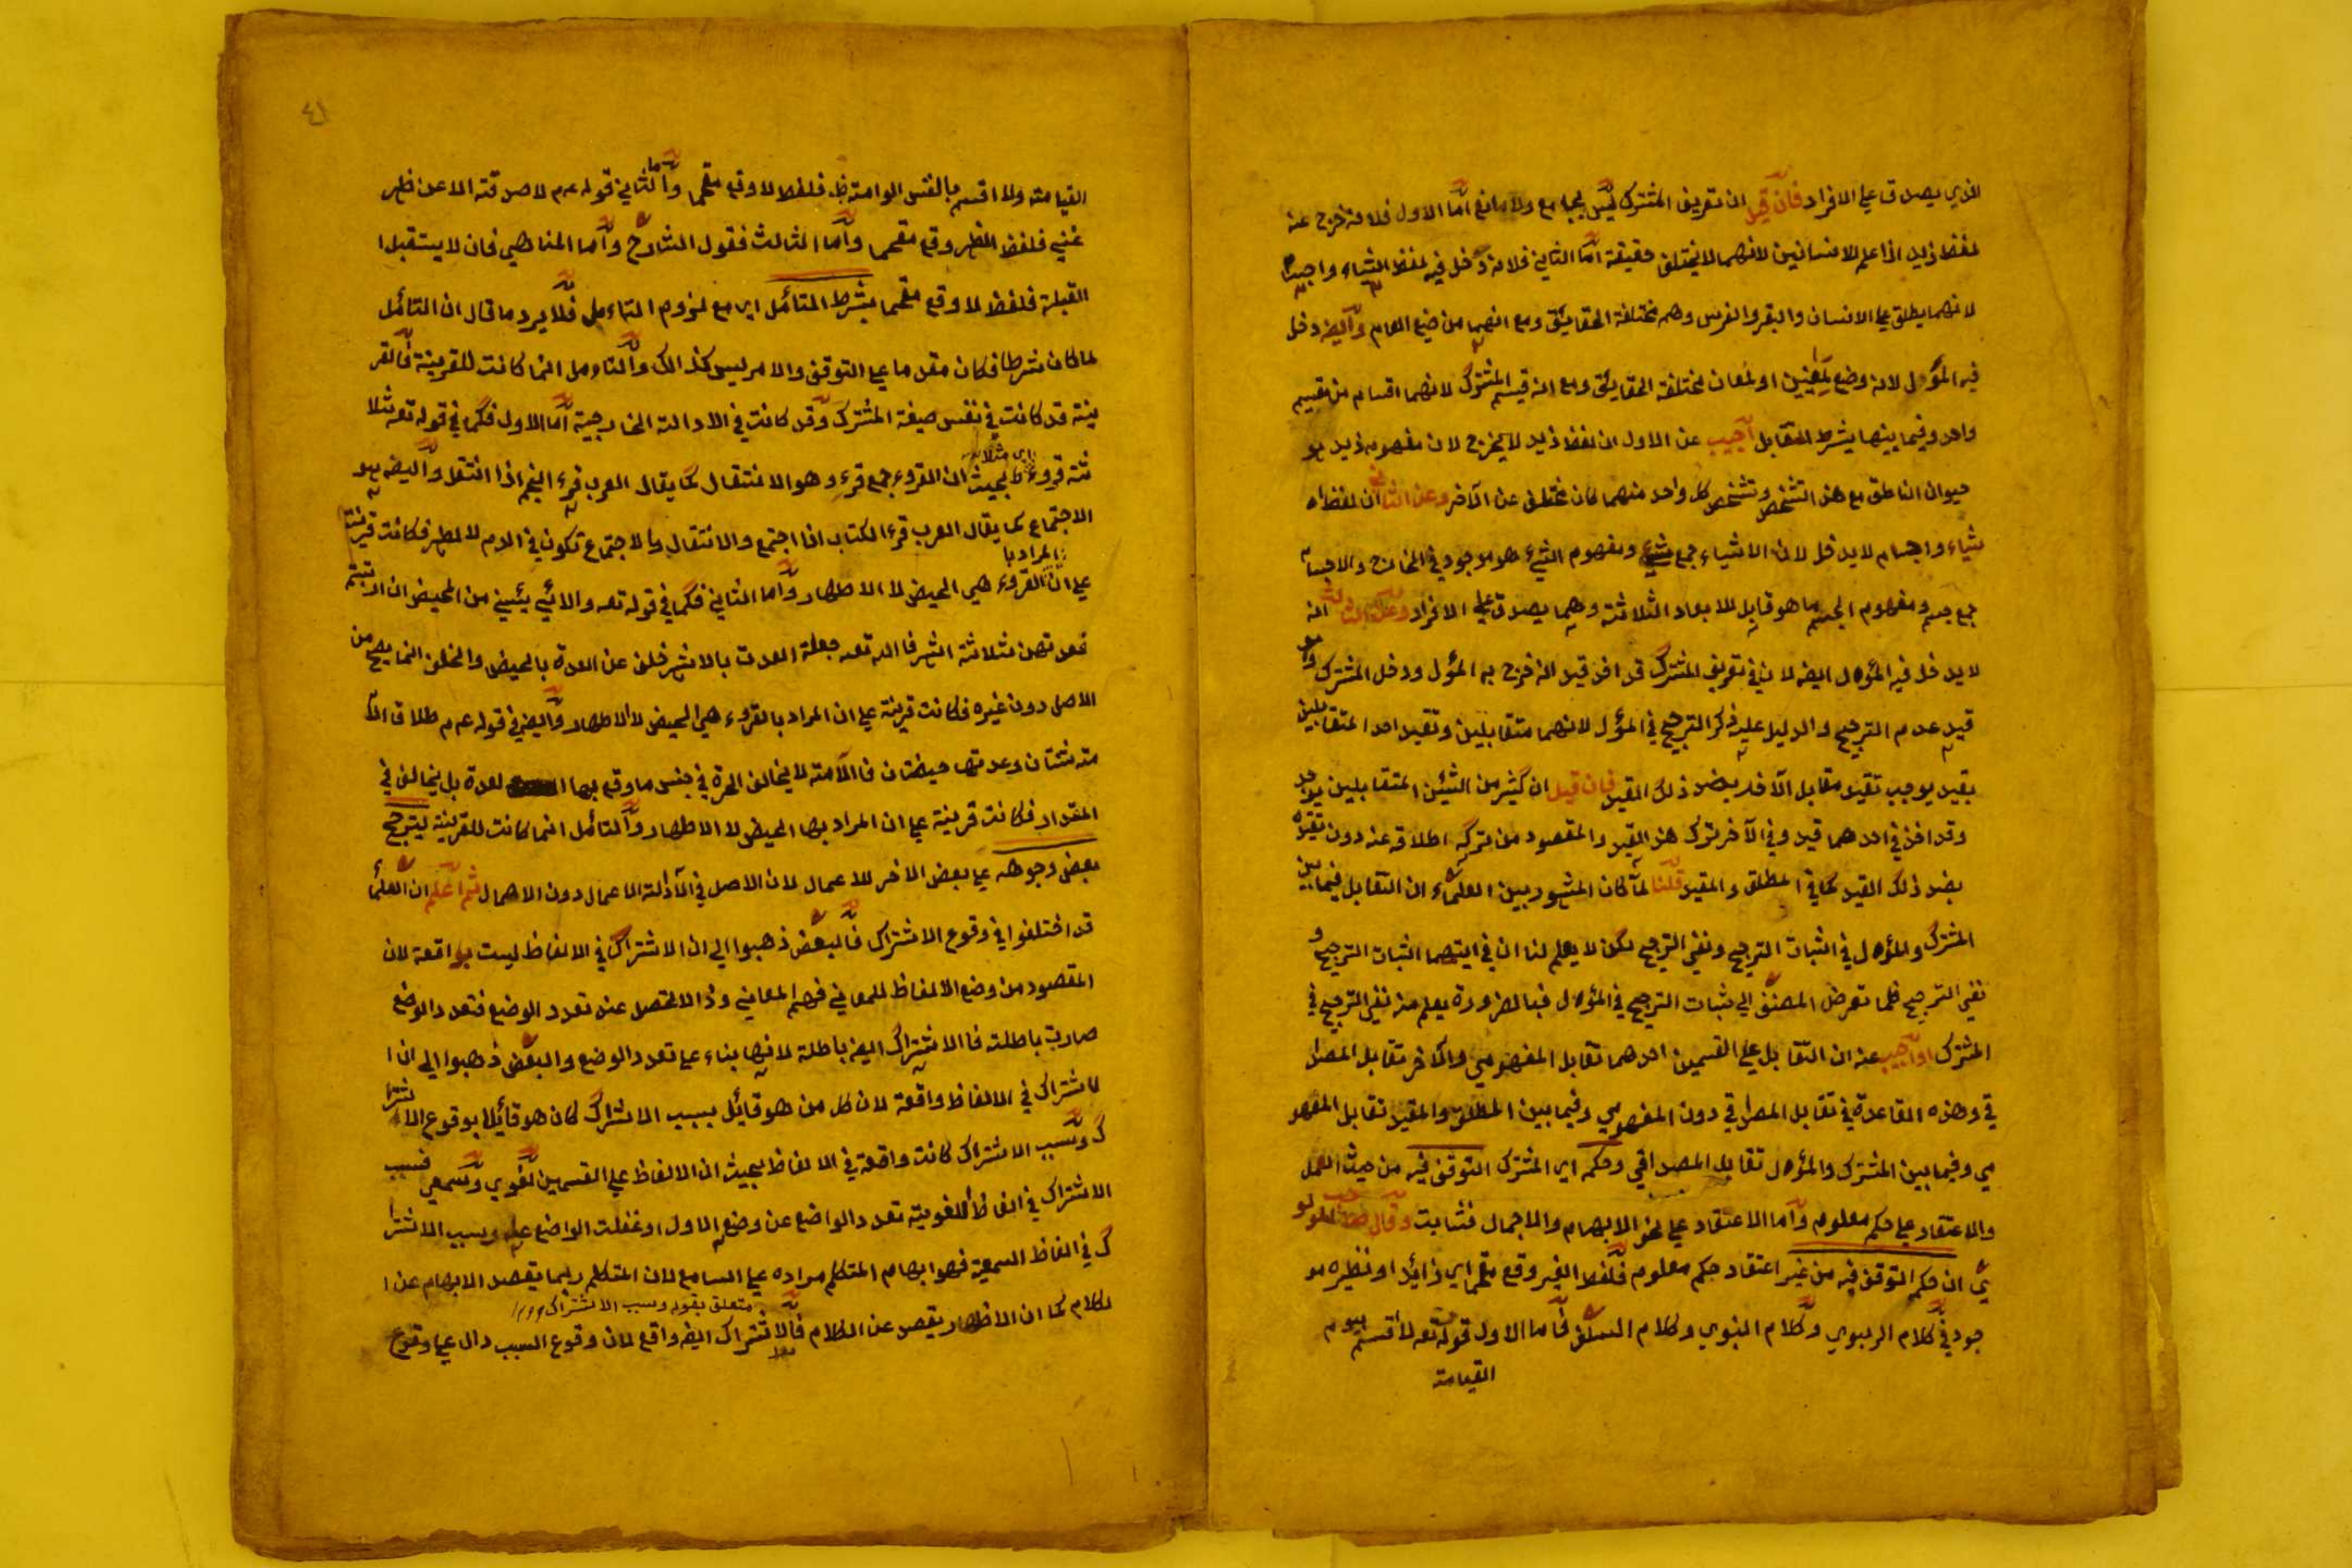 الذي يصدق علي الافراد فان قيل ان تعريف المشترك ليس بجامع ولا مانع اما الاول فلانه خرج عنه
لفظ زيد اذا علم للانسانين لانهما لا يختلف حقيقة اما الثاني فلانه دخل فيه لفظ اشياء واجسام
لانهما يطلق علي الانسان والبقر والفرس وهم مختلفة الحقايئق ومع انهما من ضيع العام وأليضه دخل
فيه المؤل لانه وضع لمعنيين او لمعان مختلفة الحقايئق ومع انه قيسم المشترك لانهما اقسام من تقسيم
واحد وفيما بينهما يشرط التقابل اجيب عن الاول ان لفظ زيد لا يخرج لان مفهومه زيد هو
حيوان الناطق مع هذا التشخص وتشخص كل واحد منهما كان مختلف عن الآخر وعن الثاني ان لفظ ا
شياء واجسام لا يدخل لان الاشياء جمع شيء ومفهوم الشيء هو موجود في الخارج والاجسام
جمع جسم ومفهوم الجسم ما هو قابل للابعاد الثلاثة وهما يصدق علي الافراد وعن الثالث انه
لا يدخل فيه المؤول اليضه لان في تعريف المشترك قد اخذ قيد انه خرج به المؤل ودخل المشترك وهو
قيد عدم الترجيح والدليل عليه ذكر الترجيح في المؤل لانهما متقابلين وتقيد احد المتقابلين
بقيد يوجب تقيد مقابل الآخر بضد ذلك القيد فان قيل ان كثير من الشيئن المتقابلين يوجد
وقد اخذ في احدهما قيد وفي الآخر بترك هذا القيد والمقصود من تركه اطلاقه عنه دون تقيده
بضد ذلك القيد كما في المطلق والمقيد قلنا لما كان المشهور بين العلماء ان التقابل فيما بين
المشترك والمؤول في اثبات الترجيح ونفي الترجيح لكن لا يعلم لنا ان في ايتهما اثبات الترجيح و
نفي الترجيح فلما تعرض المصنف الي ثبات الترجيح في المؤول فبالضرورة يعلم منه نفي الترجيح في
المشترك او اجيب عنه ان التقابل علي القسمين احدهما تقابل المفهومي والآخر تقابل المصدا
قي وهذه القاعدة في تقابل المصداقي دون المفهومي وفيما بين المطلق والمقيد تقابل المفهو
مي وفيما بين المشترك والمؤول تقابل المصداقي وحكمه اي المشترك التوقف فيه من حيث العمل
والاعتقاد علي حكم معلوم وأما الاعتقاد علي نحو الابهام والاجمال فثابت وقال صاحب المولو
ي ان حكم التوقف فيه من غير اعتقاد حكم معلوم فلفظ الغير وقع مقحما اي زائيد او نظيره مو
جود في كلام الربوبي وكلام النبوي وكلام السلف فاما الاول قوله تعه لا اقسم بيوم
القيامة
٤١
القيامة ولا اقسم بالنفس الوامة فلفظ لا وقع مقحما وأما الثاني قوله عم لا صدقة الا عن ظهر
غني فلفظ الظهر وقع مقحما وأما الثالث فقول الشارح وأما المناهي فان لا يستقبل ا
القبلة فلفظ لا وقع مقحما بشرط التأمل اي مع لزوم التاءمل فلا يرد ما قال ان التأمل
لما كان شرطا فكان مقدما علي التوقف والامر ليس كذالك والتاءمل انما كانت للقرينة فالقر
ينة قد كانت في نفس صيغة المشترك وقد كانت في الادالة الخارجية اما الاول فكما في قوله تعه ثلا
ثة قروء اي مثلا بحيث ان القروء جمع قرء وهو الانتقال كما يقال العرب قرء النجم اذا انتقل وأليضه هو
الاجتماع كما يقال العرب قرء الكتاب اذا اجتمع والانتقال والاجتماع تكون في الدم لا لطهر فكانت قرينة
علي ان المراد با القروء هي الحيض لا الاطهار وأما الثاني فكما في قوله تعه والائي يئسين من المحيض ان ارتبتم
فعدتهن ثلاثة اشهر فالله تعه جعلة العدت بالاشهر خلف عن العدة بالحيض والخلف انما يصح من
الاصل دون غيره فكانت قرينة علي ان المراد بالقروء هي الحيض لا الاطهار وأليضه في قوله عم طلاق الا
مة ثنتان وعدتها حيضتان فالآمة لا يخالف الحرة في جنس ما وقع بها العدة بل يخالف في
المقدار فكانت قرينة علي ان المراد بها الحيض لا الاطهار وألتأمل انما كانت للقرينة ليترجح
بعض وجوهه علي بعض الاخر للاعمال لان الاصل في الآدلة الاعمال دون الاهمال ثم اعلم ان العلماء
قد اختلفوا في وقوع الاشتراك فالبعض ذهبوا الي ان الاشتراك في الالفاظ ليست بواقعة لان
المقصود من وضع الالفاظ للمعاني فهم المعاني وذا لا تحصل عند تعدد الوضع فتعدد الوضع
صارت باطلة فالاشتراك اليضه باطلة لانها بناء علي تعدد الوضع والبعض ذهبوا الي ان ا
لاشتراك في الالفاظ واقعة لان كل من هو قائيل بسبب الاشتراك كان هو قائيلا بوقوع الاشترا
ك وسبب الاشتراك كانت واقعة في الالفاظ بحيث ان الالفاظ علي القسمين لغوي وسمعي فسبب
الاشتراك في الفاظ اللغوية تعدد الواضع عن وضع الاول او غفلت الواضع عنه وسبب الاشترا
ك في الفاظ السمعية فهو ابهام المتكلم مراده علي السامع لان المتكلم ربما يقصد الابهام عن ا
لكلام كما ان الاظهار يقصد عن الكلام فالاشتراك اليضه واقع لان وقوع السبب دال علي وقوع
متعلق بقوله وسبب الاشتراك